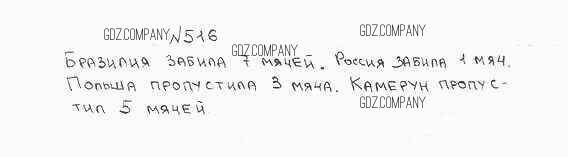 GDZ.COMPANY
№516
GDZ.COMPANY
GDZ.COMPANY
Бразилия забила 7 мячей. Россия забила 1 мяч.
Польша пропустила 3 мяча. Камерун пропус-
GDZ.COMPANY
тил 5 мячей.